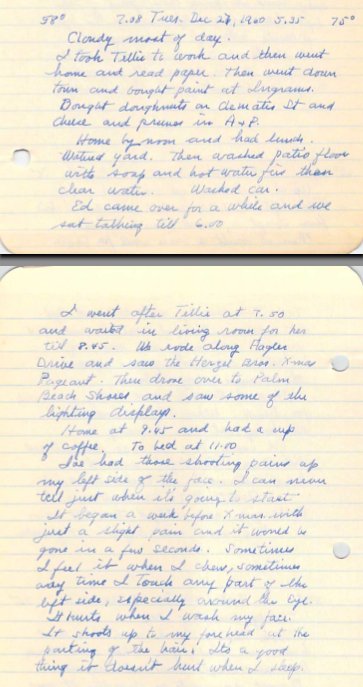 58° 7.08 Tues. Dec 27, 1960 5.35 75°
Cloudy most of day.
I took Tillie to work and then went
home and read paper. Then went down
town and bought paint at Ingrams.
Bought doughnuts on Clematis St and
cheese and prunes in A & P.
Home by noon and had lunch.
Watered yard. Then washed patio floor
with soap and hot water first then
clear water. Washed car.
Ed came over for a while and we
sat talking till 6.00
I went after Tillie at 7.50
and waited in living room for her
till 8.45. We rode along Flagler
Drive and saw the Herzel Bros. Xmas
Pageant. Then drove over to Palm
Beach Shores and saw some of the
lighting displays.
Home at 9.45 and had a cup
of coffee. To bed at 11.00
I've had those shooting pains up
my left side of the face. I can never
tell just when it's going to start
It began a week before Xmas with
just a slight pain and it would be
gone in a few seconds. Sometimes
I feel it when I chew, sometimes
every time I touch any part of the
left side, especially around the eye.
It hurts when I wash my face.
It shoots up to my forehead at the
parting of the hair. Its a good
thing it doesn't hurt when I sleep.